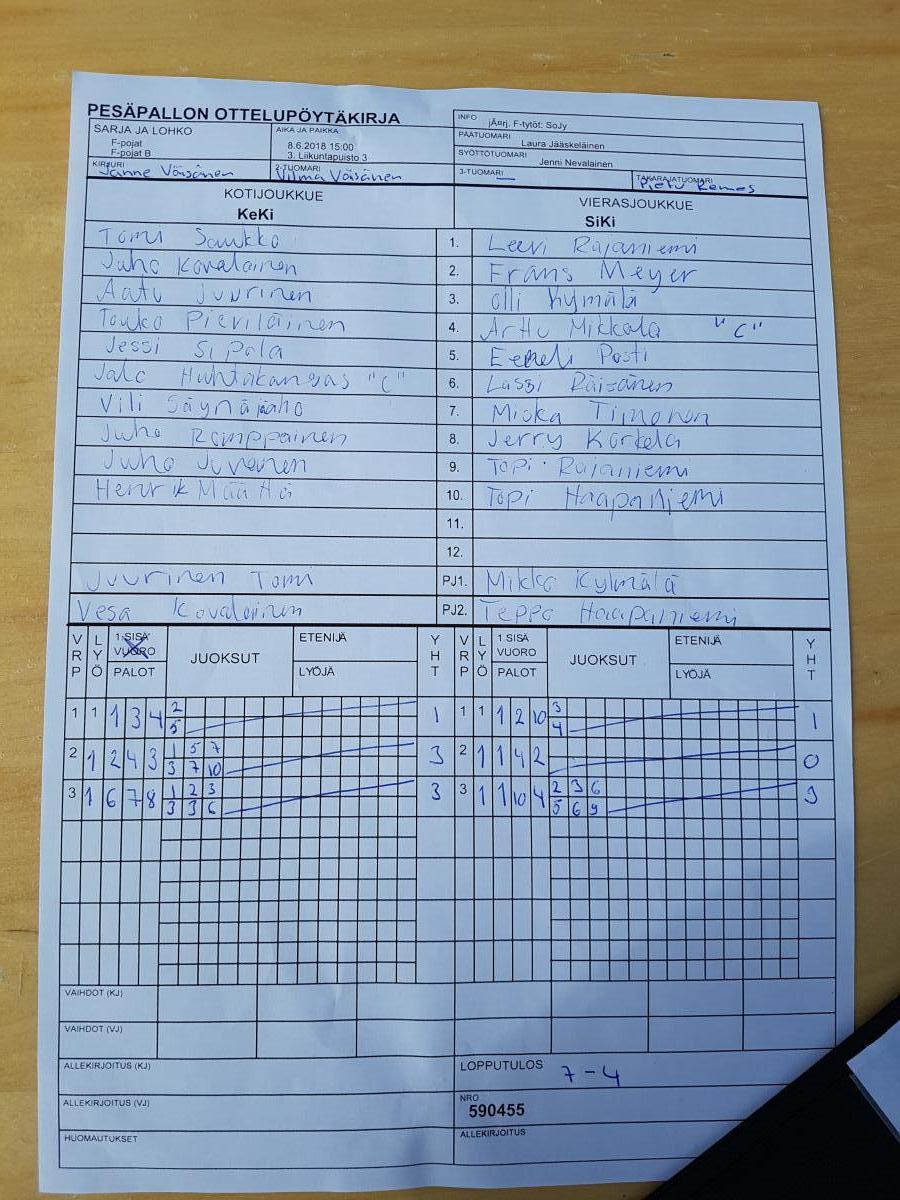 PESÄPALLON OTTELUPÖYTÄKIRJA
INFO jÄ¤rj. F-tytöt: SoJy
SARJA JA LOHKO
F-pojat
F-pojat B
AIKA JA PAIKKA
8.6.2018 15:00
3. Liikuntapuisto 3
PÄÄTUOMARI
Laura Jääskeläinen
SYÖTTÖTUOMARI
Jenni Nevalainen
KIRJURI Janne Väisänen
2-TUOMARI Vilma Väisänen
3-TUOMARI —
TAKARAJATUOMARI Pietu Remes
KOTIJOUKKUE
KeKi
VIERASJOUKKUE
SiKi
Tomi Saukko 1. Leevi Rajaniemi
Juho Kovalainen 2. Frans Meyer
Aatu Juurinen 3. Olli Kymälä
Touko Pieviläinen 4. Arttu Mikkola "C"
Jessi Sipola 5. Eemeli Posti
Jalo Huhtakangas "C" 6. Lassi Räisänen
Vili Säynäjäaho 7. Miska Timonen
Juho Romppainen 8. Jerry Korkela
Juho Juvonen 9. Topi Rajaniemi
Henrik Määttä 10. Topi Haapaniemi
11.
12.
Juurinen Tomi PJ1. Mikko Kylmälä
Vesa Kovalainen PJ2. Teppo Haapaniemi
VRP LYÖ 1.SISÄ VUORO PALOT JUOKSUT ETENIJÄ LYÖJÄ YHT VRP LYÖ 1.SISÄ VUORO PALOT JUOKSUT ETENIJÄ LYÖJÄ YHT
1 1 1 3 4 2 1 1 1 1 2 10 3 1
5 4
2 1 2 4 3 1 5 7 3 2 1 1 4 2 0
3 7 10
3 1 6 7 8 1 2 3 3 3 1 1 10 4 2 3 6 3
3 3 6 5 6 9
VAIHDOT (KJ)
VAIHDOT (VJ)
ALLEKIRJOITUS (KJ)
LOPPUTULOS 7-4
ALLEKIRJOITUS (VJ)
NRO
590455
HUOMAUTUKSET
ALLEKIRJOITUS